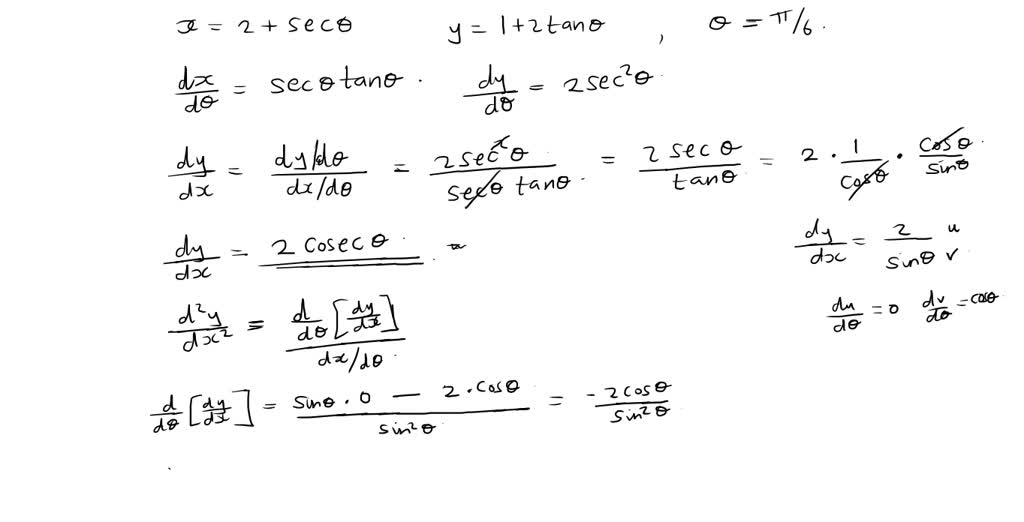 x = 2 + secθ    y = 1 + 2tanθ , θ = π/6.
dx/dθ = secθ tanθ. dy/dθ = 2sec²θ.
dy/dx = (dy/dθ)/(dx/dθ) = 2sec²θ/(secθ tanθ) = 2secθ/tanθ = 2 · 1/cosθ · cosθ/sinθ
dy/dx = 2 cosecθ.
dy/dx = 2/sinθ u v
d²y/dx² = d/dθ[dy/dx]/(dx/dθ)
du/dθ = 0 dv/dθ = cosθ
d/dθ[dy/dx] = (sinθ · 0 − 2 · cosθ)/sin²θ = -2cosθ/sin²θ